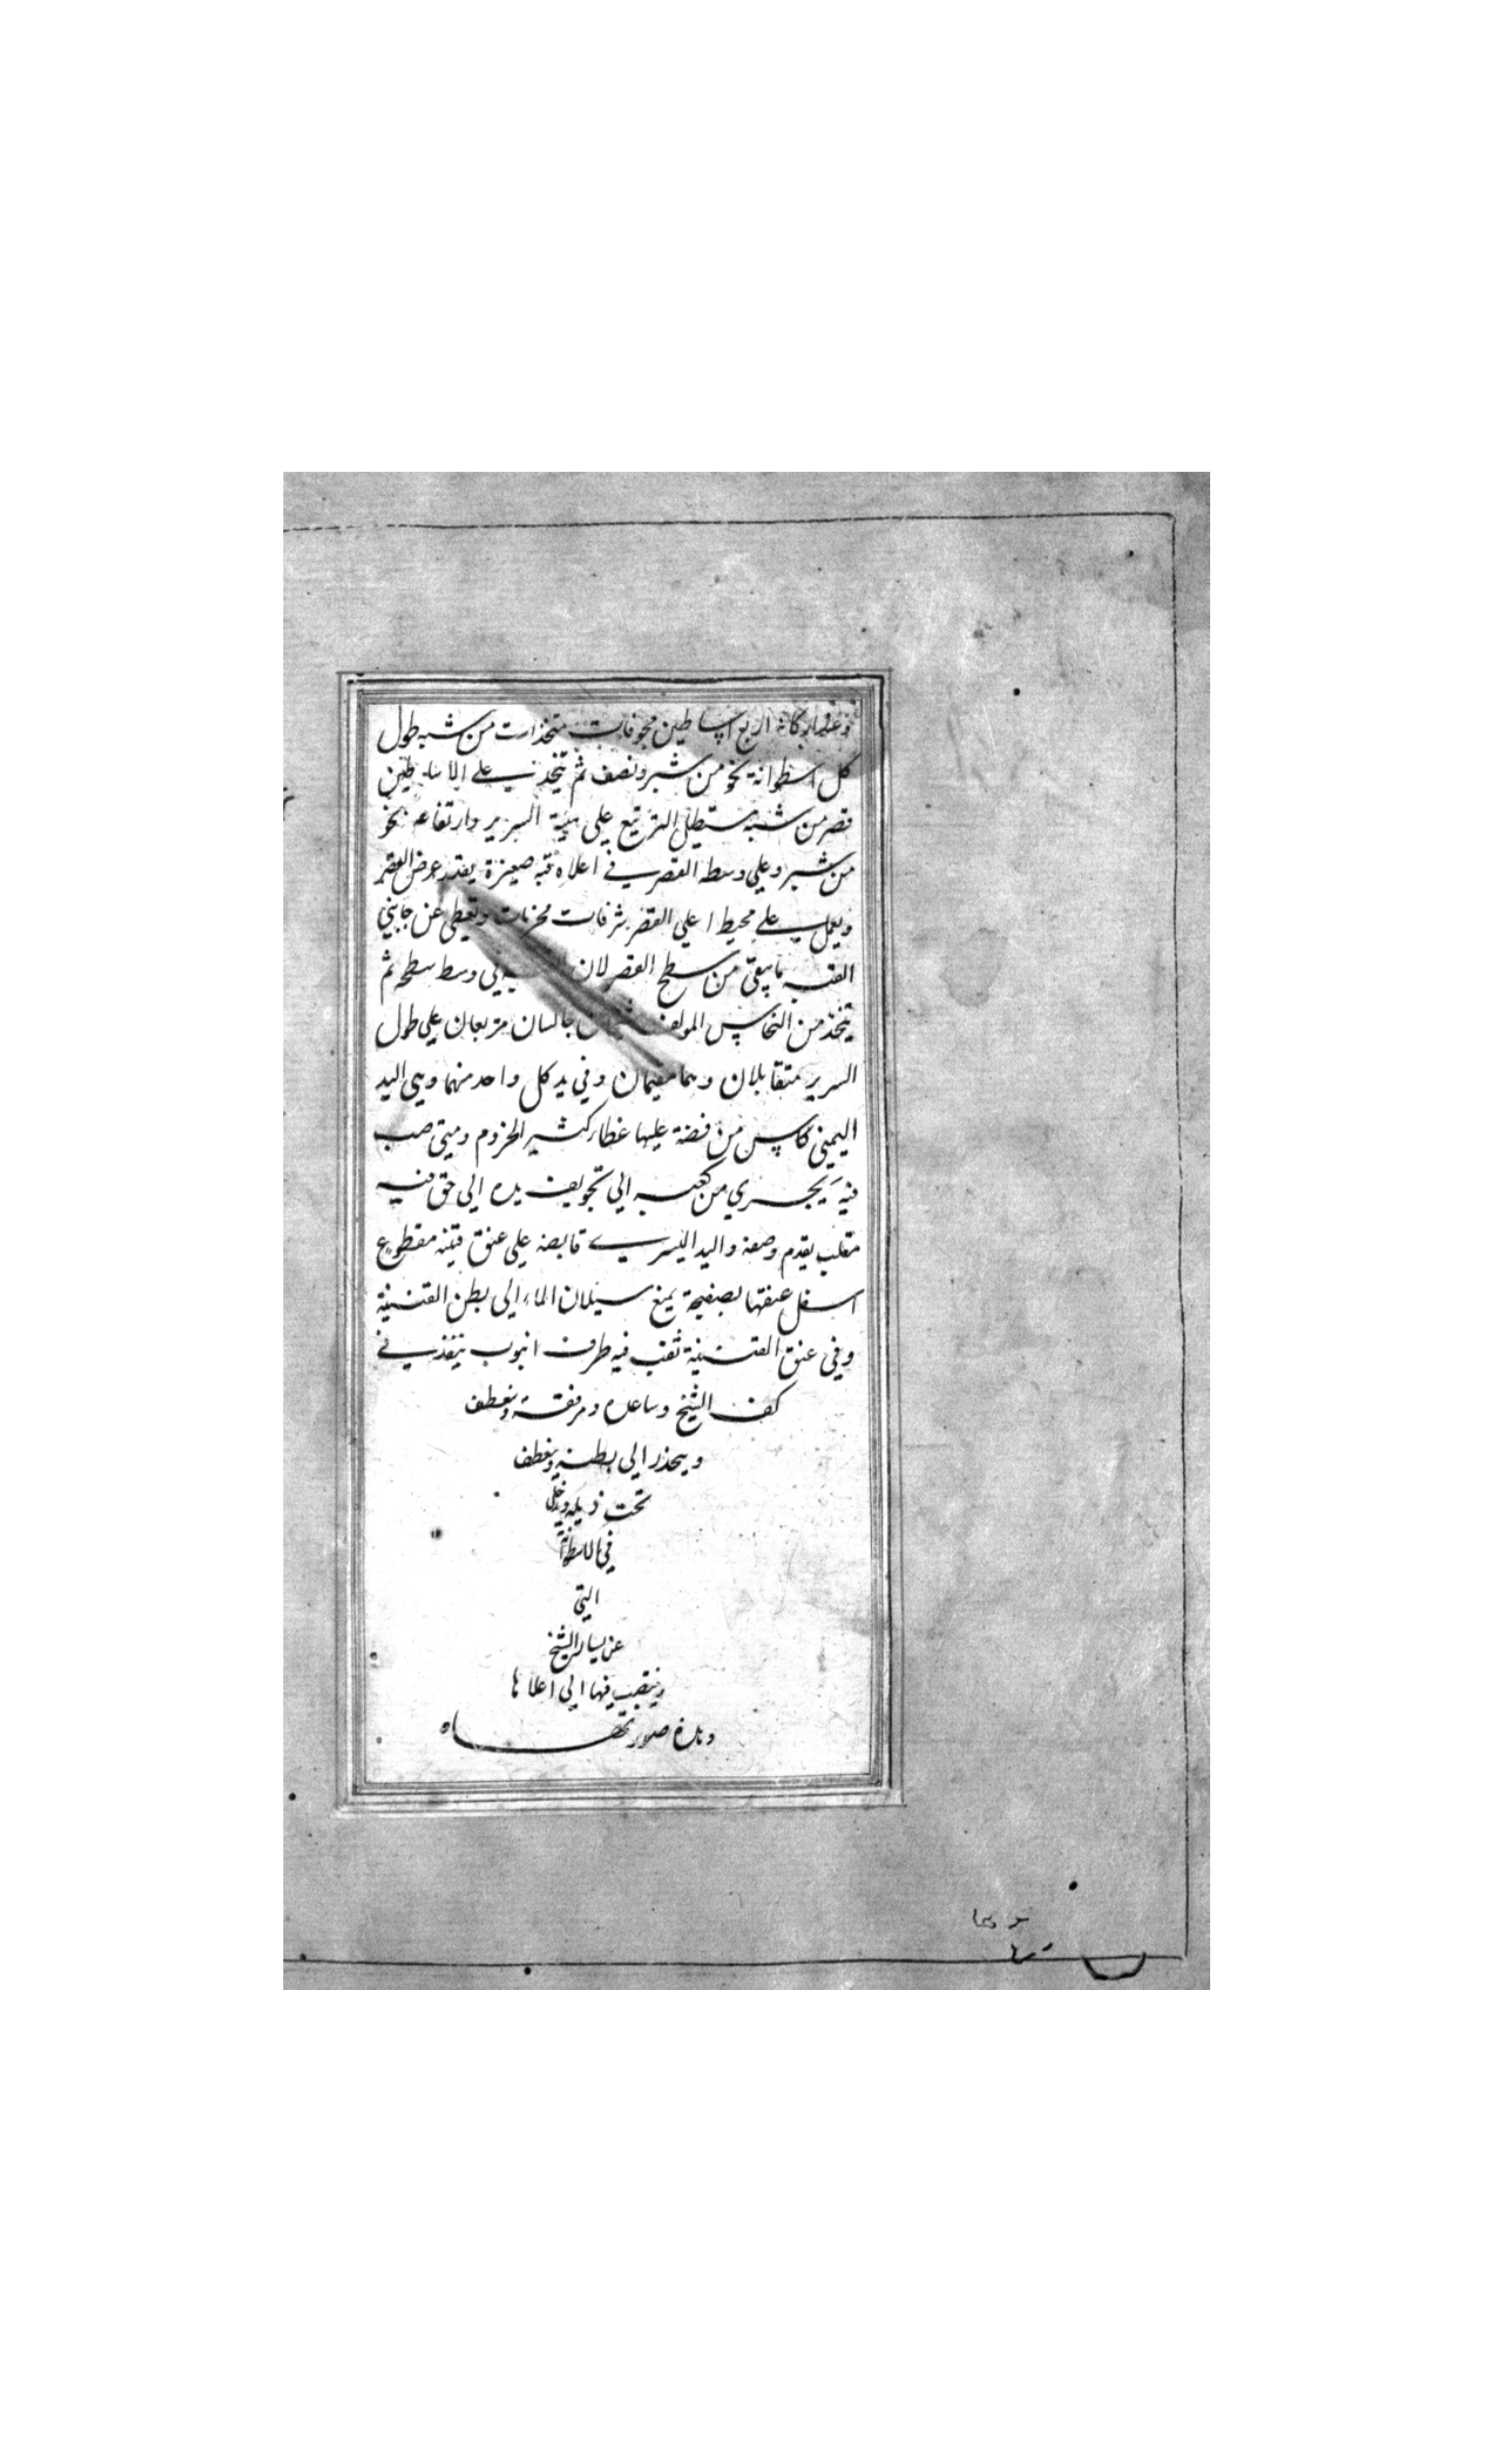 وعلى اركانه اربع اساطين مجوفات متخذات من شبه طول
كل اسطوانة نحو من شبر ونصف ثم يتخذ على الاساطين
قصر من شبه مستطيل التربيع على هيئة السرير وارتفاعه نحو
من شبر وعلى وسط القصر في اعلاه قبه صغيرة بقدر عرض القصر
ويعمل على محيط اعلى القصر شرفات مخرمات وتغطى عن جانبي
القبه ما يبقى من سطح القصر لان الى وسط سطحه ثم
يتخذ من النحاس المولف شيخان جالسان متربعان على طول
السرير متقابلان وهما مقيمان وفي يد كل واحد منهما وهي اليد
اليمنى كاس من فضة عليها غطاء كثير الخروم ومتى صب
فيه يجري من كعبه الى تجويف يده الى حق فيه
مقلب يقدم وصفه واليد اليسرى قابضه على عنق قنينه مقطوع
اسفل عنقها بصفيحة يمنع سيلان الماء الى بطن القنينة
وفي عنق القنينة ثقب فيه طرف انبوب ينفذ في
كف الشيخ وساعده ومرفقة وينعطف
وينحدر الى بطنه وينعطف
تحت ذيله ويدخل
في الاسطوانة
التي
عن يسار الشيخ
وينتصب فيها الى اعلاها
وهذه صورتهاه